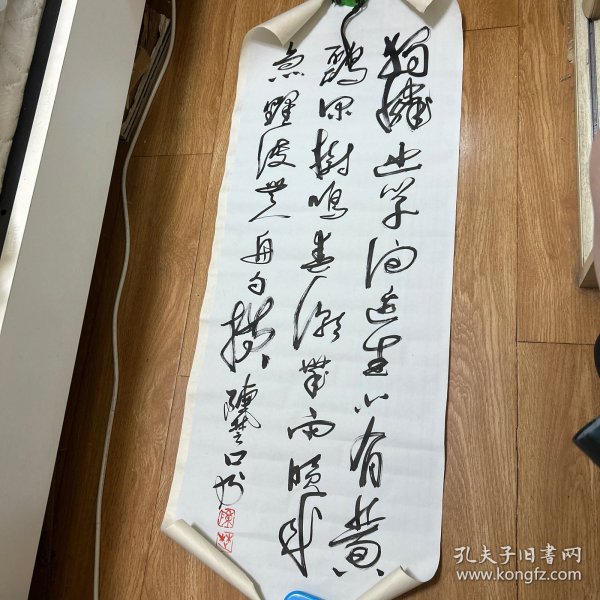 独怜幽草涧边生上有黄
鹂深树鸣春潮带雨晚来
急野渡无人舟自横
陈楚
孔夫子旧书网
www.kongfz.com